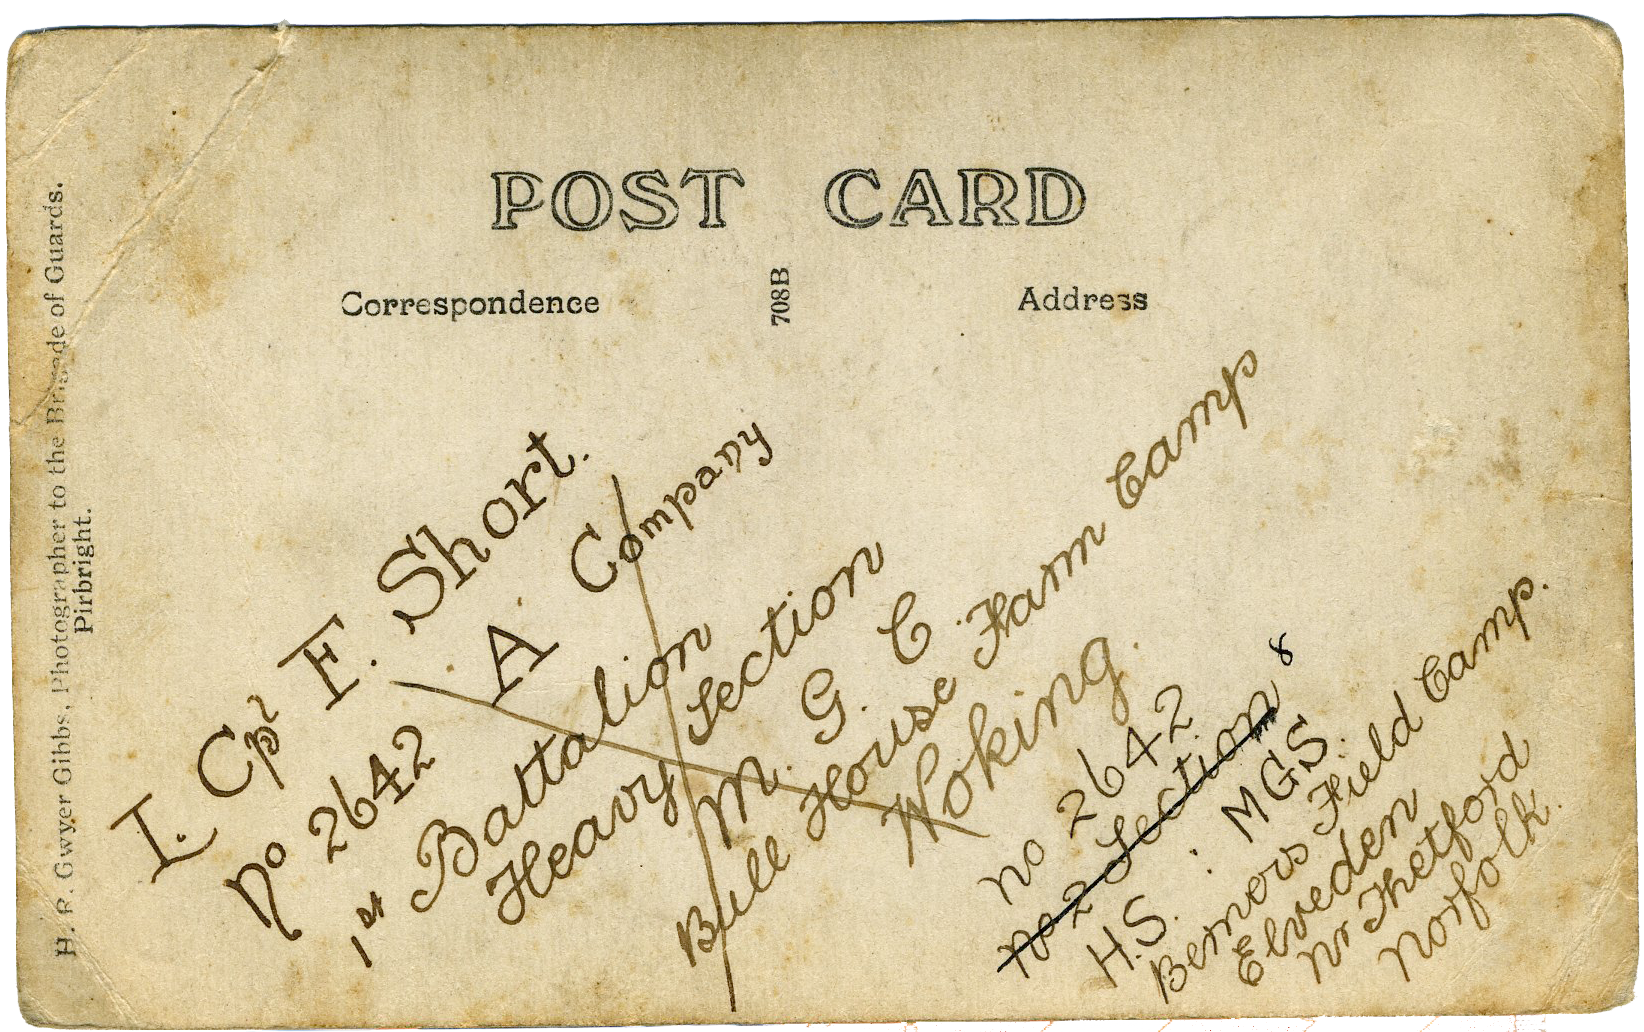 POST CARD
Correspondence
708B
Address
H. R. Gwyer Gibbs, Photographer to the Brigade of Guards.
Pirbright.
L. Cpl F. Short.
No 2642 A Company
1st Battalion
Heavy Section
M. G. C.
Bull House Farm Camp
Woking.
no 2642
no 2 Section 8
H.S. : MGS.
Bernors Field Camp.
Elveden
nr Thetford
Norfolk.